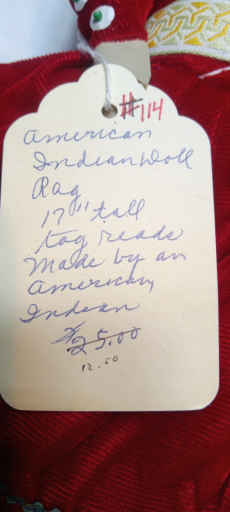 #114
American
Indian Doll
Rag
17" tall
tag reads
Made by an
American
Indian
$25.00
12.50